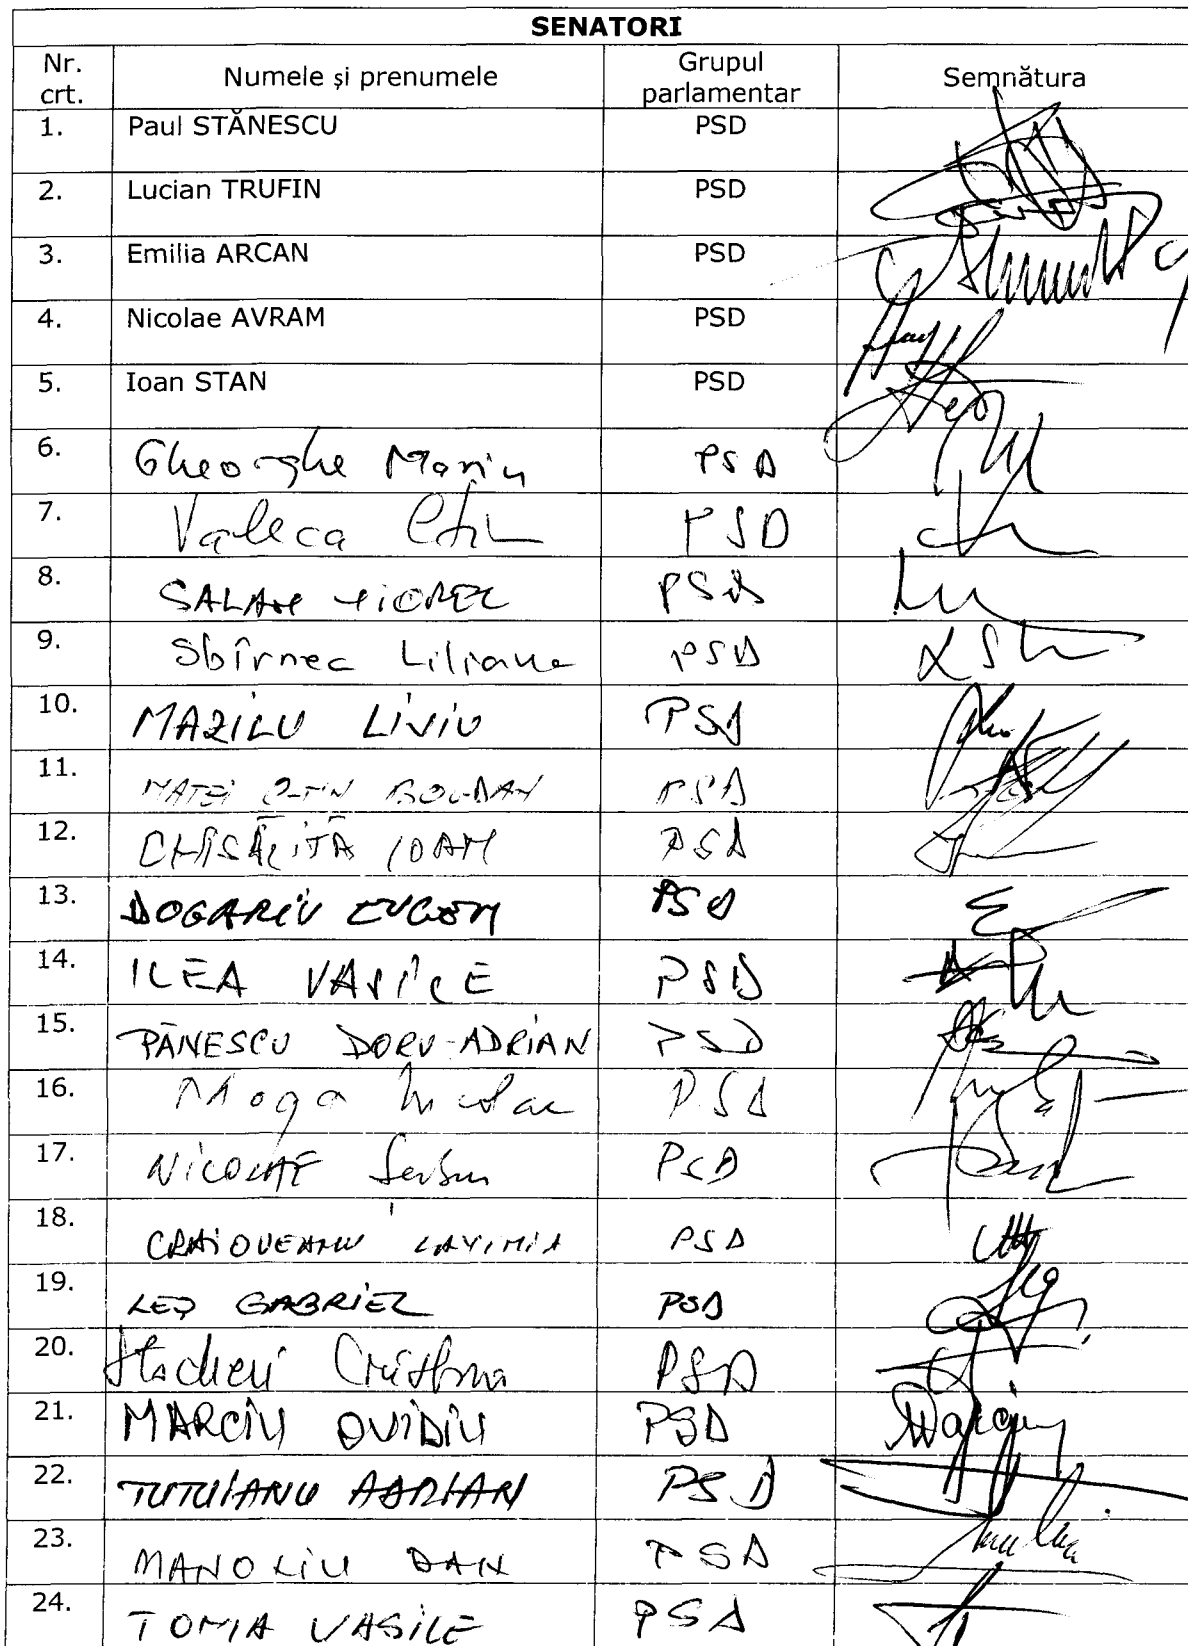 SENATORI
Nr. crt. Numele și prenumele Grupul parlamentar Semnătura
1. Paul STĂNESCU PSD
2. Lucian TRUFIN PSD
3. Emilia ARCAN PSD
4. Nicolae AVRAM PSD
5. Ioan STAN PSD
6. Gheorghe Marin PSD
7. Valeca PSD
8. SALAN VIOREL PSD
9. Sbîrnea Liliana PSD
10. MAZILU LIVIU PSD
11. MATEI C-TIN BOGDAN PSD
12. CHISĂLIȚĂ IOAN PSD
13. DOGARIU EUGEN PSD
14. ILEA VASILE PSD
15. PĂNESCU DORU-ADRIAN PSD
16. Moga Nicolae PSD
17. NICOLAE Serban PSD
18. CRAIOVEANU LAVINIA PSD
19. LEȘ GABRIEL PSD
20. Cristina PSD
21. MARCIU OVIDIU PSD Marciu
22. TUTUIANU ADRIAN PSD
23. MANOLIU DAN PSD
24. TOMA VASILE PSD